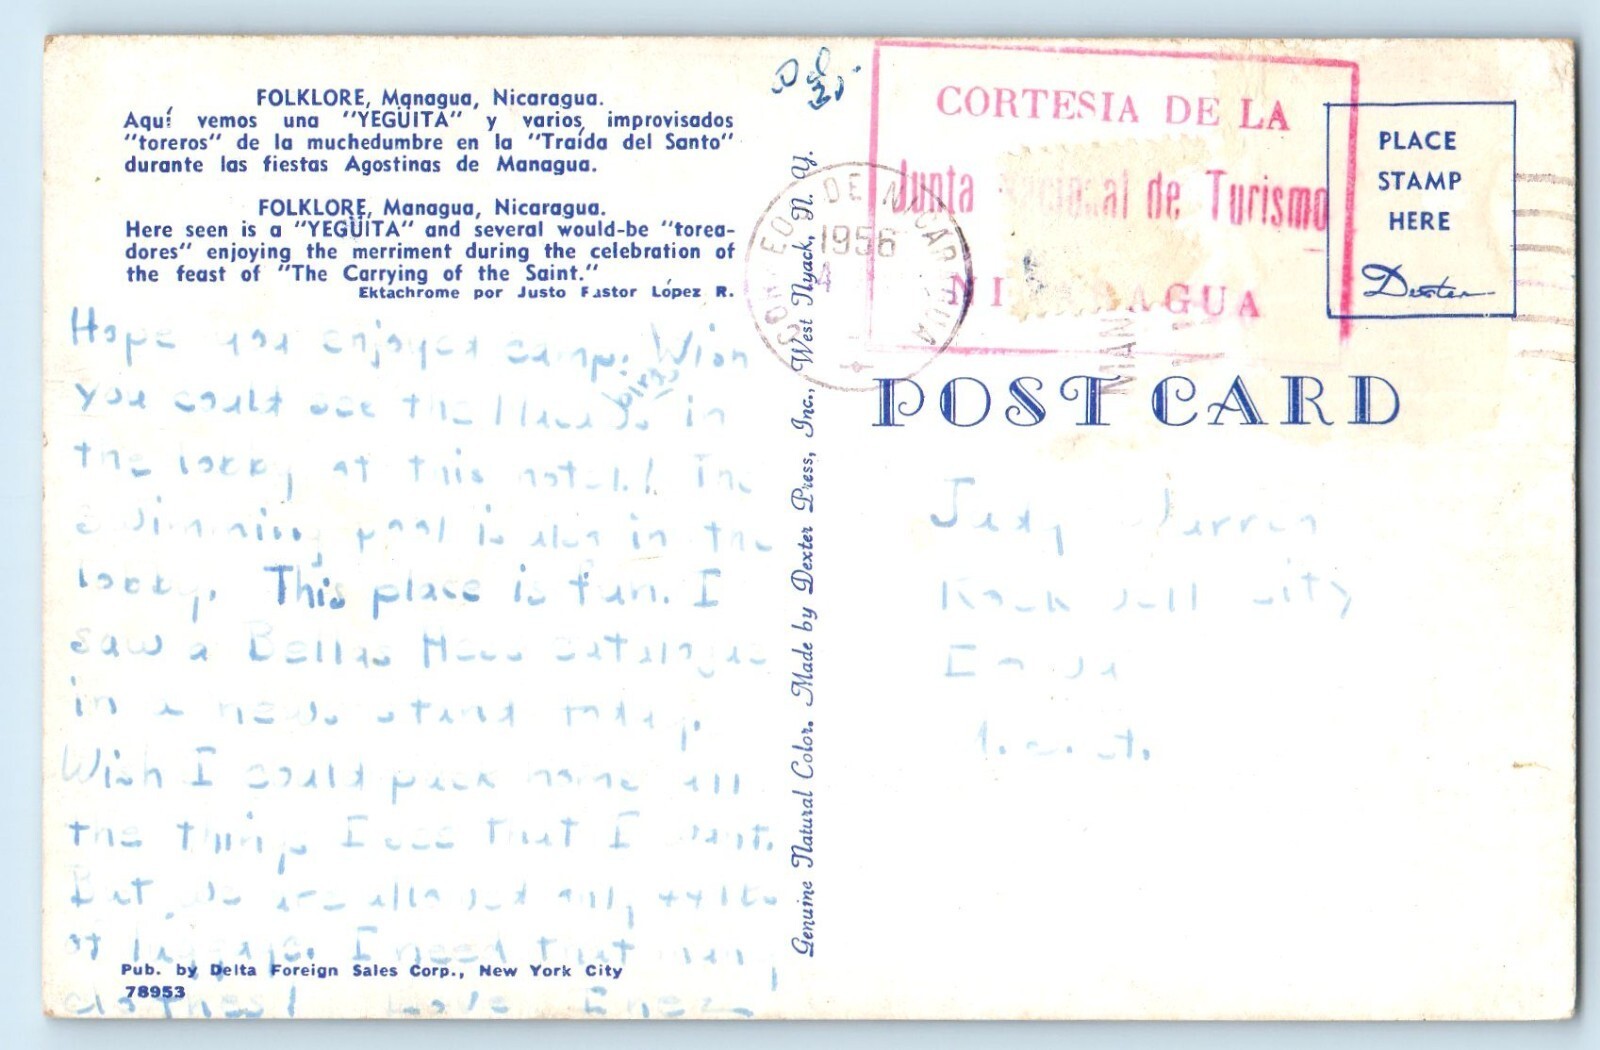 FOLKLORE, Managua, Nicaragua.
Aquí vemos una "YEGÜITA" y varios improvisados
"toreros" de la muchedumbre en la "Traída del Santo"
durante las fiestas Agostinas de Managua.
FOLKLORE, Managua, Nicaragua.
Here seen is a "YEGÜITA" and several would-be "torea-
dores" enjoying the merriment during the celebration of
the feast of "The Carrying of the Saint."
Ektachrome por Justo Pastor López R.
Hope you enjoyed camp. Wish
birds
you could see the in
the lobby at this hotel! The
swimming pool is also in the
lobby. This place is fun. I
saw a Bellas Hess catalogue
in a news stand today.
Wish I could pack home all
the things I see that I want.
But we are allowed only 44 lbs
of luggage. I need that many
clothes! Love Inez
Pub. by Delta Foreign Sales Corp., New York City
78953
Genuine Natural Color. Made by Dexter Press, Inc., West Nyack, N. Y.
CORTESIA DE LA
Junta Nacional de Turismo
NICARAGUA
CORREO DE NICARAGUA
1956
PLACE
STAMP
HERE
Dexter
POST CARD
Judy
Rockwell City
Iowa